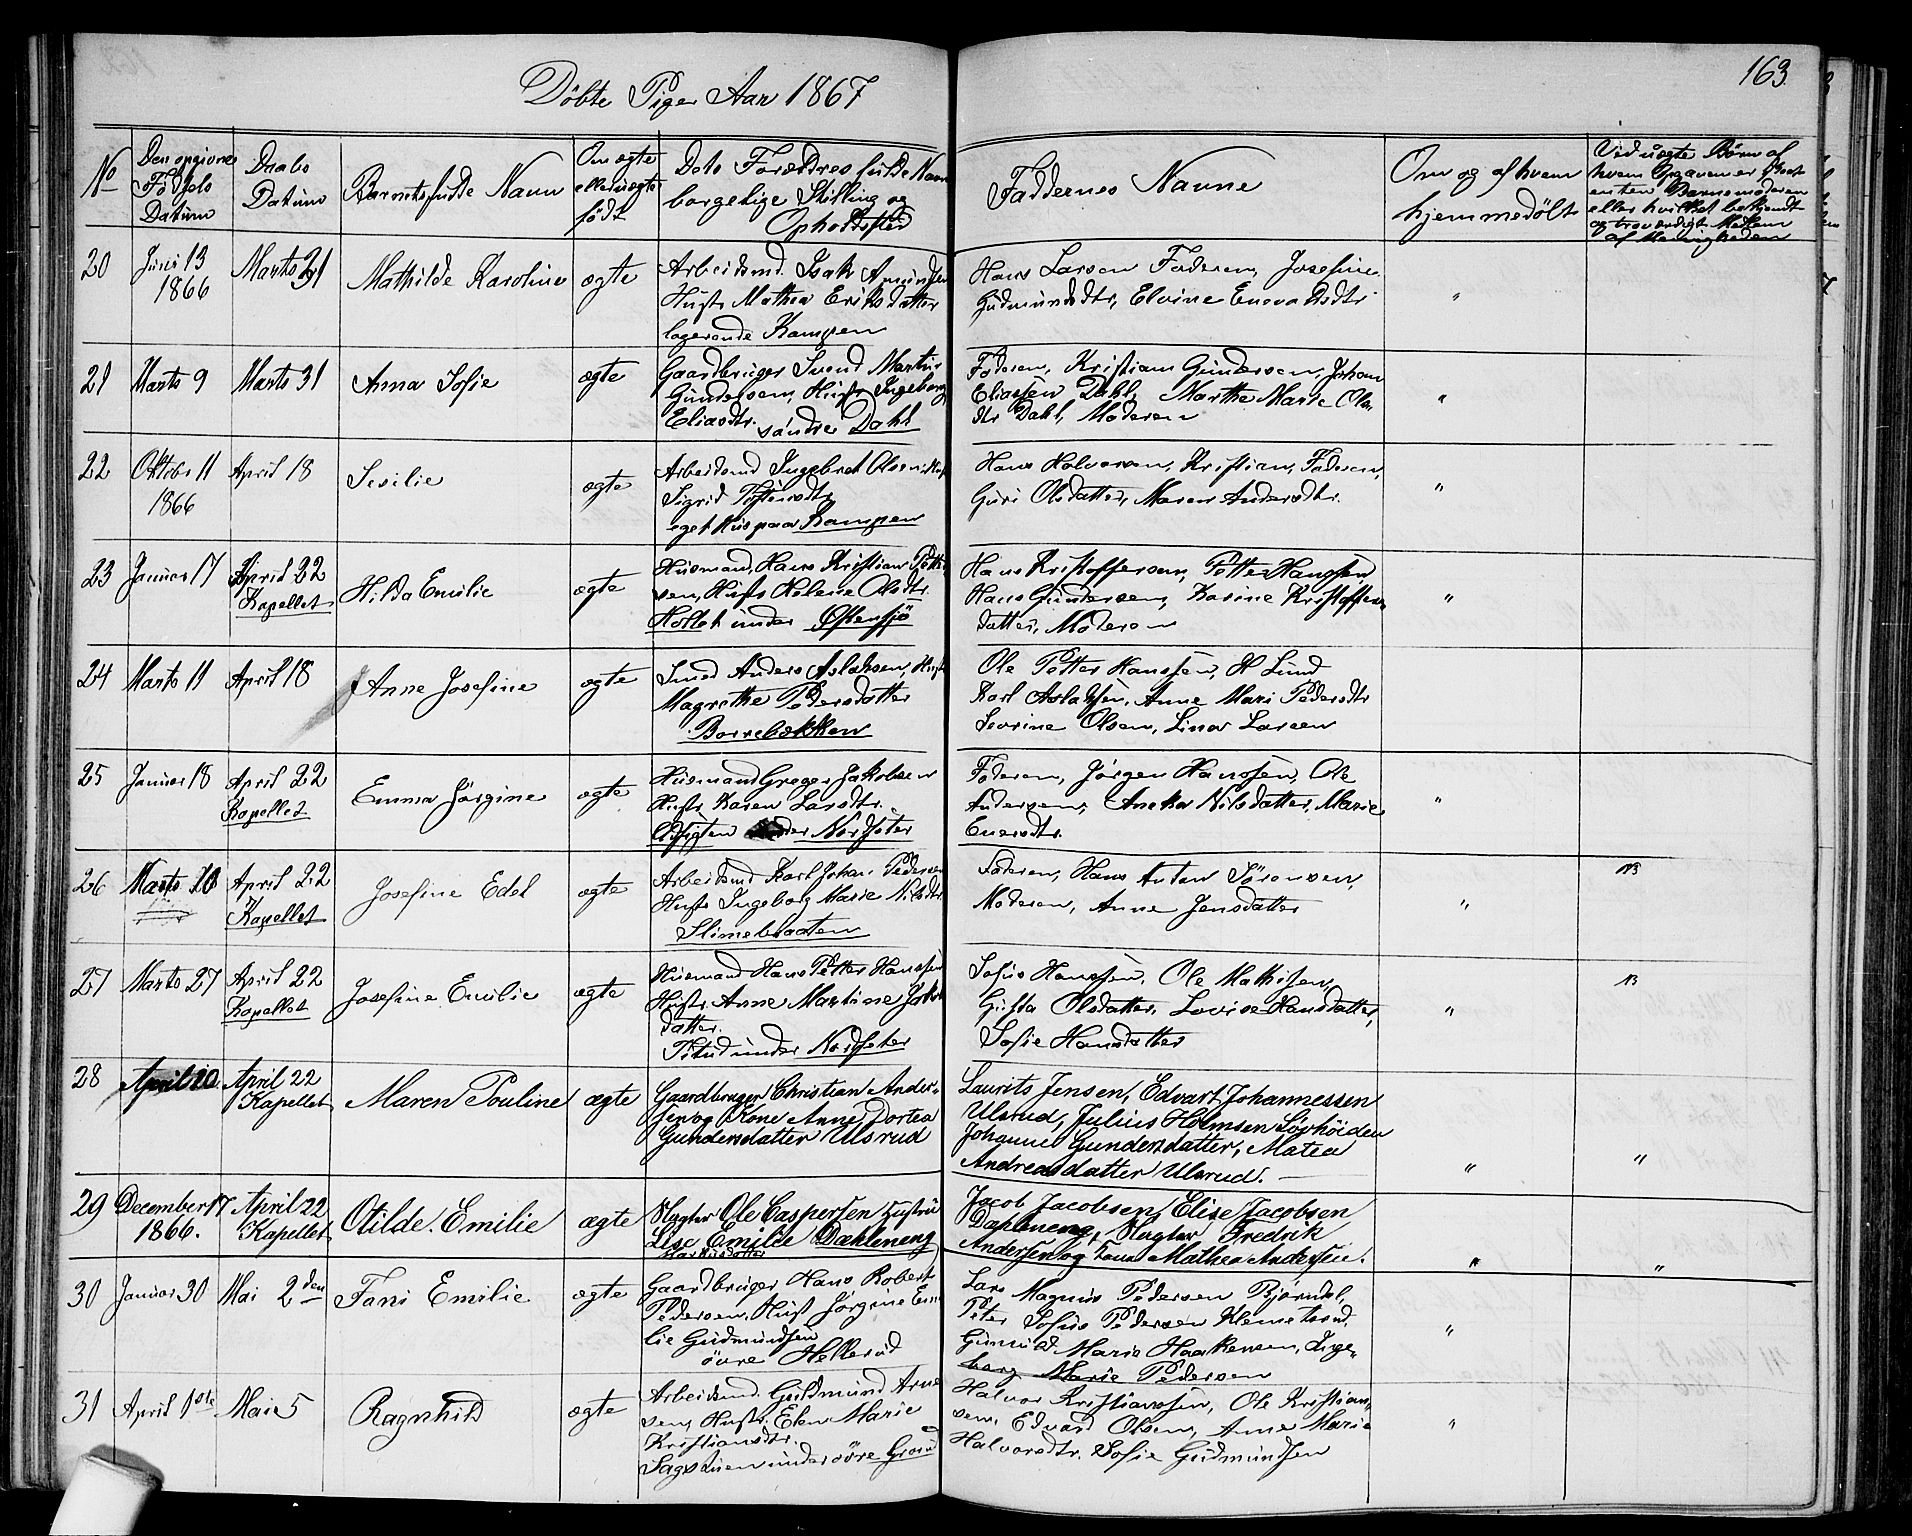 163.
Döbte Piger Aar 1867
No
Den opgivne
Födsels
Datum
Daabs
Datum
Barnets fulde Navn
Om ægte
eller uægte
födt
Dets Forældres fulde Navn
borgelige Stilling og
Opholdssted
Faddernes Navne
Om og af hvem
hjemmedöbt
Ved uægte Börn af
hvem Opgaven er skeet
enten Barnemoderen
eller hvilket bekjendt
og troværdigt Medlem
af Menigheden
20 Juni 13 Marts 31 Mathilde Karoline ægte Arbeidsmd. Isak Amundsen Hans Larsen Faderen, Josefine
1866 Hustr Mathea Eriksdatter Gudmundsdtr, Elvine Enevaldsdtr "
logerende Kampen
21 Marts 9 Marts 31 Anna Sofie ægte Gaardbruger Svend Martin Faderen, Kristian Gundersen, Johan
Gundersen, Hustr Ingeborg Eliassen Dahl, Marthe Marie Ols- "
Eliasdtr. söndre Dahl dtr Dahl, Moderen
22 Oktobr 11 April 18 Sesilie ægte Arbeidsmd Ingebret Olsen, Hustr Hans Halvorsen, Kristian, Faderen,
1866 Sigrid Guri Olsdatter, Maren Andersdtr. "
eget Hus paa Kampen
23 Januar 17 April 22 Hilda Emilie ægte Husmand, Hans Kristian Petter- Hans Kristoffersen, Petter Hanssen,
Kapellet sen, Hustr Helene Olsdtr. Hans Gundersen, Karine Kristoffers- "
under Østensjö datter, Moderen
24 Marts 11 April 18 Anne Josefine ægte Smed Anders Aslaksen, Hustr Ole Petter Hanssen, H Lund
Magrethe Pedersdatter Karl Aslaksen, Anne Mari Pedersdtr
Borrebækken Sevrine Olsen, Lina Larsen
25 Januar 18 April 22 Emma Jörgine ægte Husmand Greger Jakobsen Faderen, Jörgen Hanssen, Ole
Kapellet Hustr Karen Larsdtr. Andersen, Aneka Nilsdatter, Marie "
under Nordseter Enersdtr.
26 Marts 10 April 22 Josefine Edel ægte Arbeidsmd Karl Johan Pedersen Faderen, Hans Anton Sörensen, NB
Kapellet Hustr Ingeborg Marie Nilsdtr Moderen, Anne Jensdatter "
Slimebraaten
27 Marts 27 April 22 Josefine Emilie ægte Husmand Hans Petter Hanssen Sofus Hanssen, Ole Mathisen, NB
Kapellet Hustr. Anne Martine Jakobs Gusta Olsdatter, Lovise Hansdatter, "
datter. Sofie Hansdatter
under Nordseter
28 April 10 April 22 Maren Pouline ægte Gaardbruger Christian Ander- Laurits Jensen, Edvart Johannessen
Kapellet sen og Kone Anne Dortea Ulsrud, Julius Holmsen Lövhöiden
Gundersdatter Ulsrud Johanne Gundersdatter, Matea
Andreasdatter Ulsrud. — " "
29 December 17 April 22 Otilde Emilie ægte Slagter Ole Caspersen Hustru Jacob Jacobsen, Elise Jacobsen,
1866. Kapellet Lise Emilie Dæhleneng Dæhleneng, Slagter Fredrik
Markusdatter Andersen og Kone Mathea Andersen. " "
30 Januar 30 Mai 2den Fani Emilie ægte Gaardbruger Hans Robert Lars Magnus Pedersen Björndal,
Pedersen, Hust Jörgine Emi Peter Sofus Pedersen Klemetsrud,
lie Gudmundsen Gunild Marie Haakensen, Inge- "
övre Hellerud borg Marie Pedersen
31 April 1ste Mai 5 Ragnhild ægte Arbeidsmd. Gudmund Arne Halvor Kristianssen, Ole Kristian-
sen, Hustr. Elen Marie sen, Edvard Olsen, Anne Marie "
Kristiansdtr. Halvorsdtr. Sofie Gudmundsen
Sagstuen under övre Grorud